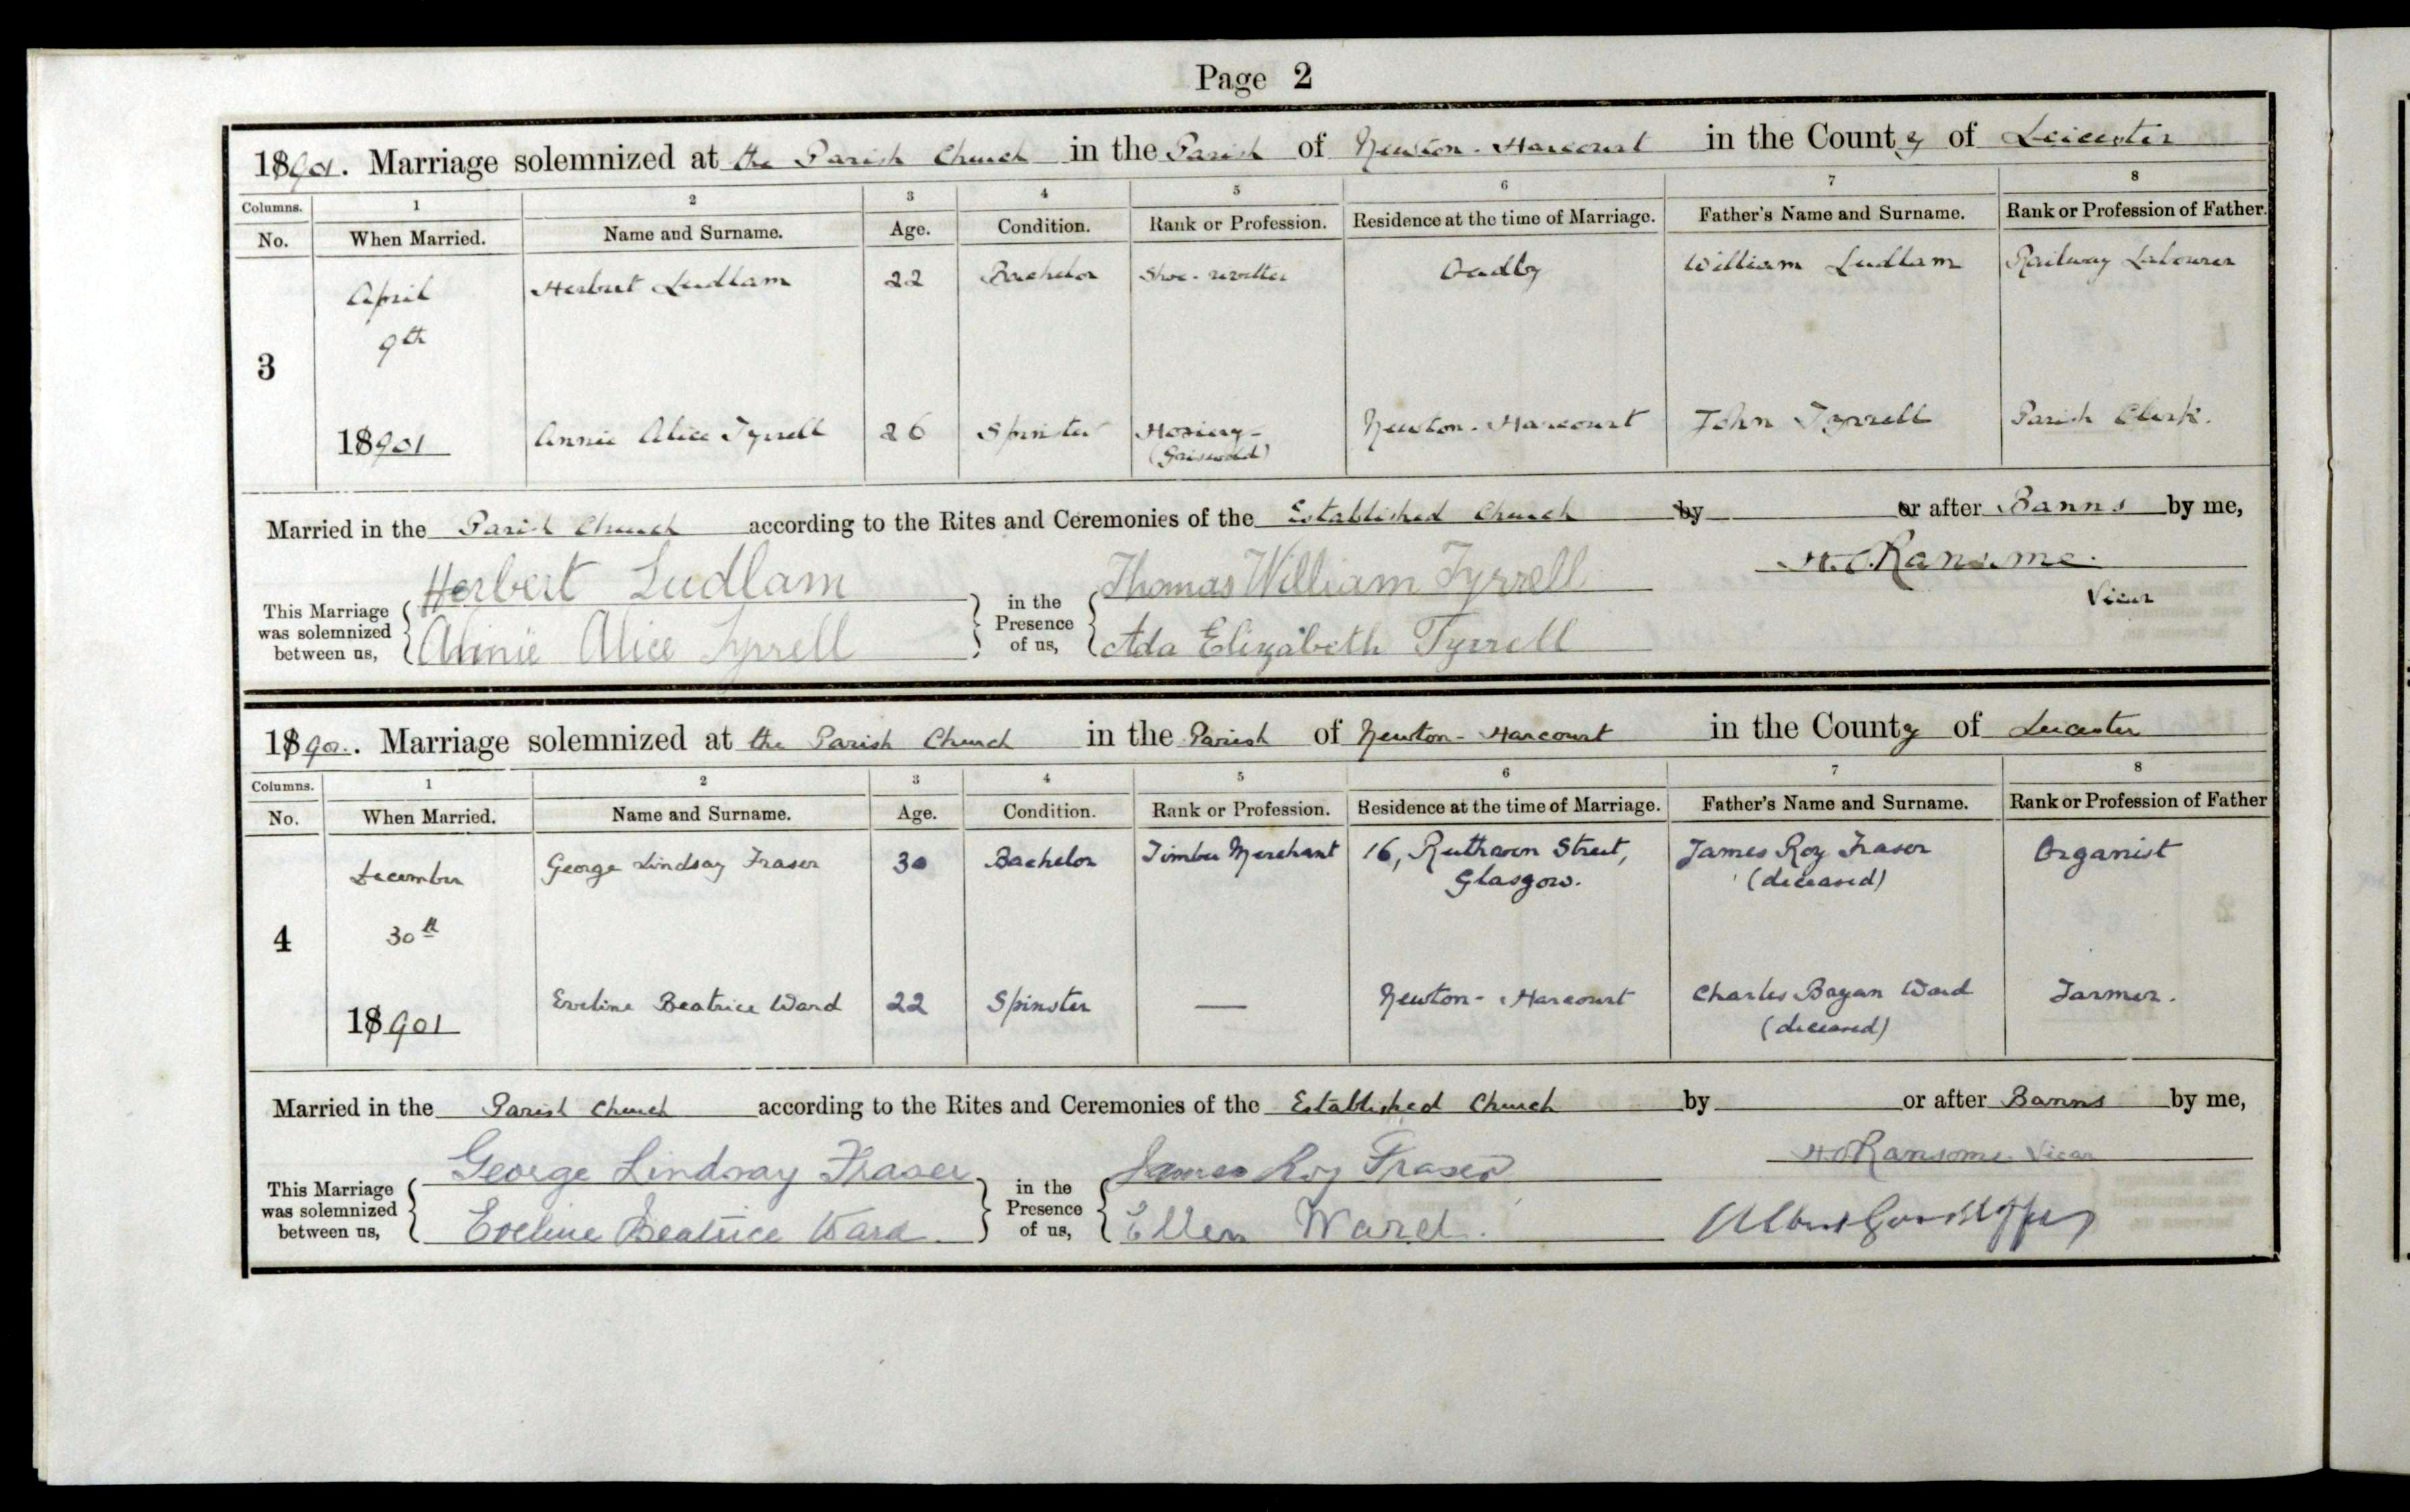 Page 2
1901. Marriage solemnized at the Parish Church in the Parish of Newton-Harcourt in the County of Leicester
Columns. 1 2 3 4 5 6 7 8
No. When Married. Name and Surname. Age. Condition. Rank or Profession. Residence at the time of Marriage. Father's Name and Surname. Rank or Profession of Father.
April Herbert Ludlam 22 Bachelor Shoe-rivetter Oadby William Ludlam Railway Labourer
9th
3
1901 Annie Alice Tyrrell 26 Spinster Hosiery- Newton-Harcourt John Tyrrell Parish Clerk.
(Griswold)
Married in the Parish Church according to the Rites and Ceremonies of the Established Church by or after Banns by me,
This Marriage was solemnized between us, Herbert Ludlam in the Presence of us, Thomas William Tyrrell Ransome.
Annie Alice Tyrrell Ada Elizabeth Tyrrell Vicar
190. Marriage solemnized at the Parish Church in the Parish of Newton-Harcourt in the County of Leicester
Columns. 1 2 3 4 5 6 7 8
No. When Married. Name and Surname. Age. Condition. Rank or Profession. Residence at the time of Marriage. Father's Name and Surname. Rank or Profession of Father
December George Lindsay Fraser 30 Bachelor Timber Merchant 16, Ruthven Street, James Roy Fraser Organist
Glasgow. (deceased)
4 30th
1901 Eveline Beatrice Ward 22 Spinster — Newton-Harcourt Charles Bryan Ward Farmer.
(deceased)
Married in the Parish Church according to the Rites and Ceremonies of the Established Church by or after Banns by me,
This Marriage was solemnized between us, George Lindsay Fraser in the Presence of us, James Roy Fraser Ransome Vicar
Eveline Beatrice Ward Ellen Ward.